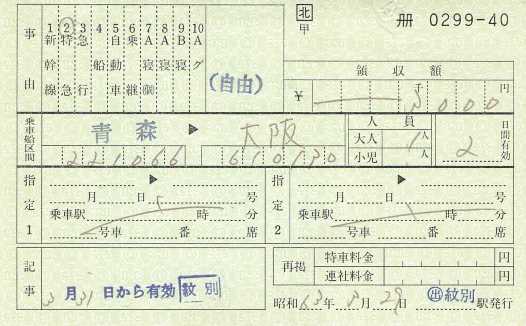 北 甲 冊 0299-40
事由
1 新幹線
② 特急
3 急行
4 船
5 自動車
6 乗継
7 A寝個
8 A寝
9 B寝
10 Aグ
(自由)
領収額
¥ 千 円
3000
乗車船区間
青森 ▶ 大阪
221066 610130
人員
大人 1人
小児 人
2 日間有効
指定1
▶
月 日 号
乗車駅 時 分
号車 番 席
指定2
▶
月 日 号
乗車駅 時 分
号車 番 席
記事
3月31日から有効 紋別
再掲
特車料金 円
連社料金 円
昭和63年3月29日 出 紋別 駅発行